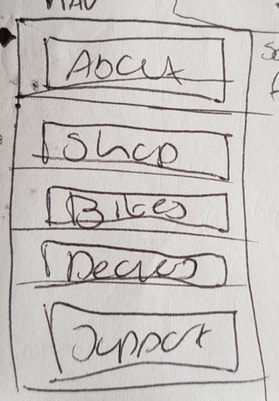 NAV
About
Shop
Bikes
Support